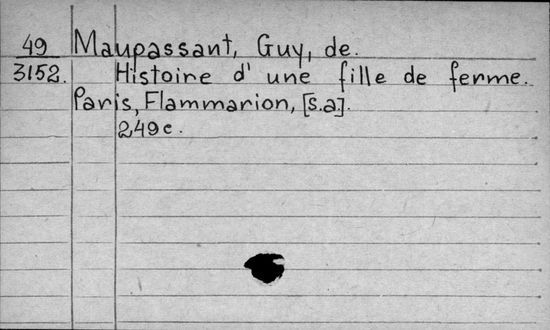 49 Maupassant, Guy, de.
3152. Histoire d' une fille de ferme.
Paris, Flammarion, [s.a].
249c.